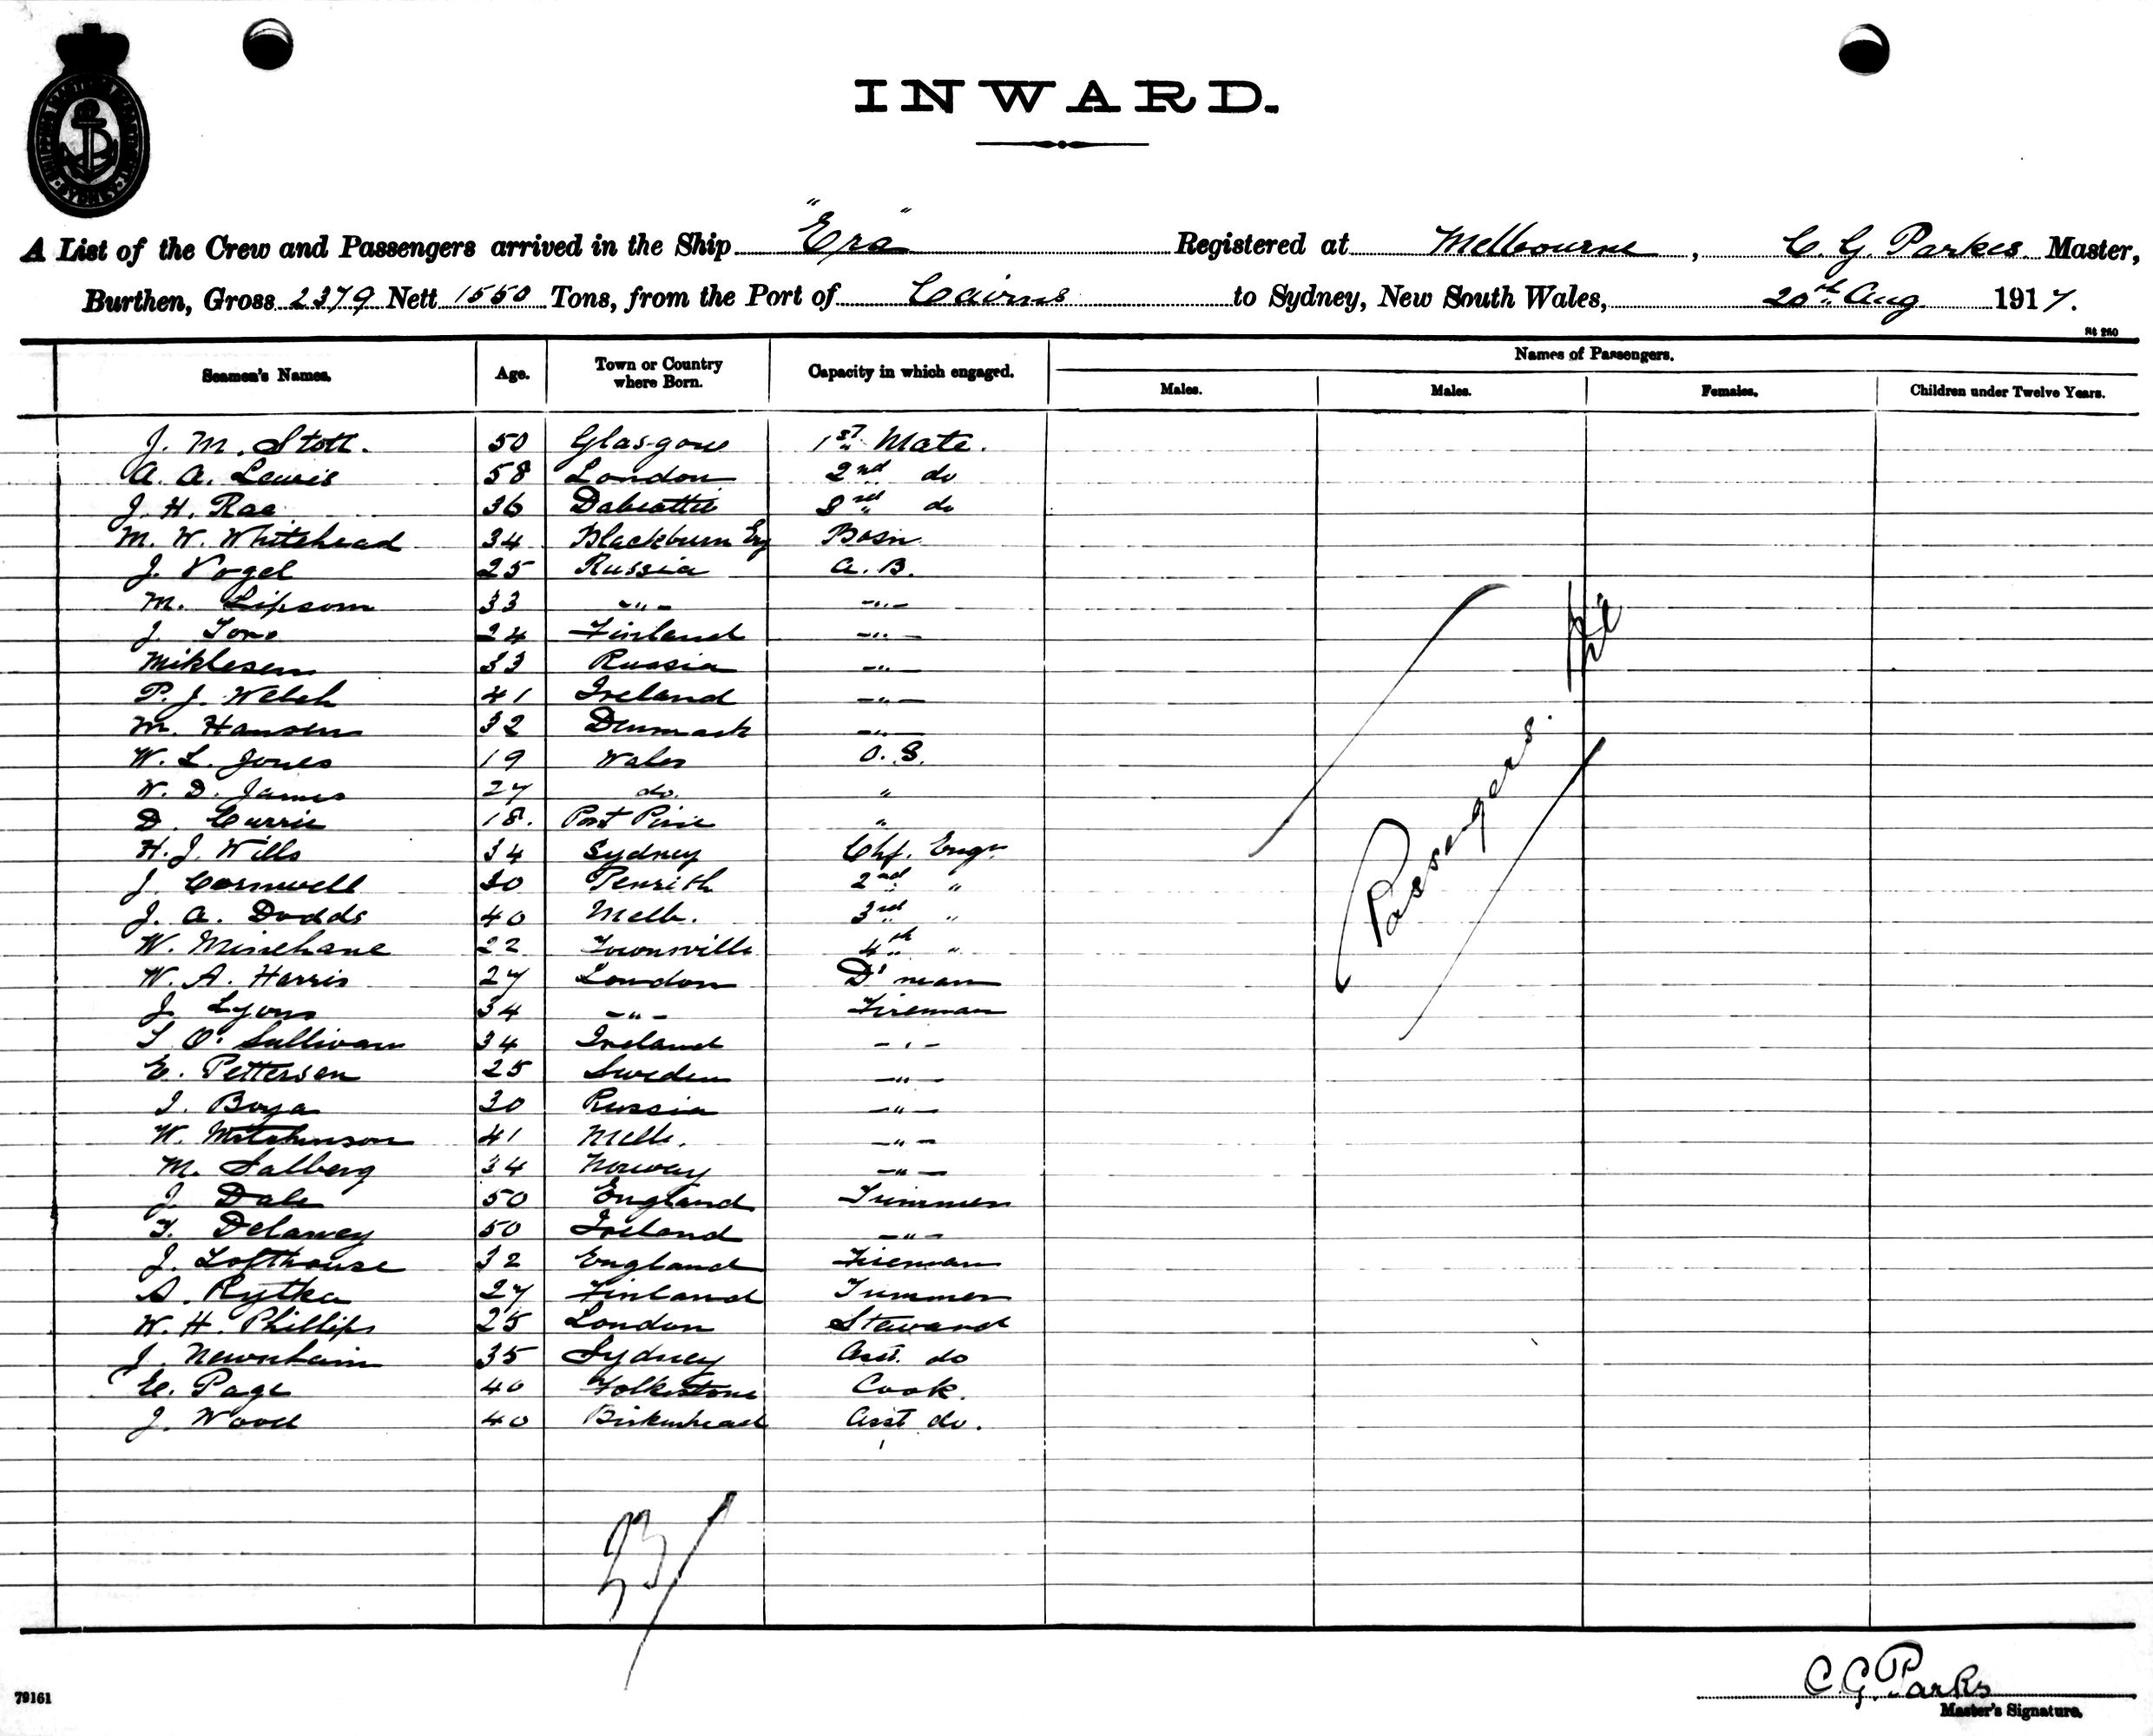 INWARD.
A List of the Crew and Passengers arrived in the Ship "Era" Registered at Melbourne, C. G. Parkes Master,
Burthen, Gross 2379 Nett 1550 Tons, from the Port of Cairns to Sydney, New South Wales, 20th Aug 1917.
St 250
Seamen's Names. Age. Town or Country where Born. Capacity in which engaged. Names of Passengers.
Males. Males. Females. Children under Twelve Years.
J. M. Stott. 50 Glasgow 1st Mate.
A. A. Lewis 58 London 2nd do
J. H. Rae 36 Dalbeattie 3rd do
M. W. Whitehead 34 Blackburn Eng Bosn
J. Vogel 25 Russia A. B.
M. Lipsom 33 -"- -"-
J. 24 Finland -"-
Miklesen 33 Russia -"-
P. J. Welsh 41 Ireland -"-
M. Hansen 32 Denmark -"-
W. L. Jones 19 Wales O. S.
W. D. James 27 do. "
D. Currie 18. Port Pirie "
H. J. Wills 34 Sydney Chf. Engr
J. Cornwell 30 Penrith 2nd "
J. A. Dodds 40 Melb. 3rd "
W. Minehane 22 Townsville 4th "
W. A. Harris 27 London D'man
J. Lyons 34 -"- Fireman
T O'Sullivan 34 Ireland -"-
E. Pettersen 25 Sweden -"-
I. Boya 30 Russia -"-
W. Mitchinson 41 Melb. -"-
M. Salberg 34 Norway -"-
J. Dale 50 England Trimmer
T. Delaney 50 Ireland -"-
J. Lofthouse 32 England Fireman
A. Rytka 27 Finland Trimmer
W. H. Phillips 25 London Steward
J. Newnham 35 Sydney Asst. do
E. Page 40 Folkestone Cook.
J. Wood 40 Birkenhead Asst do.
Passengers.
33/
C. G. Parks
Master's Signature.
79161